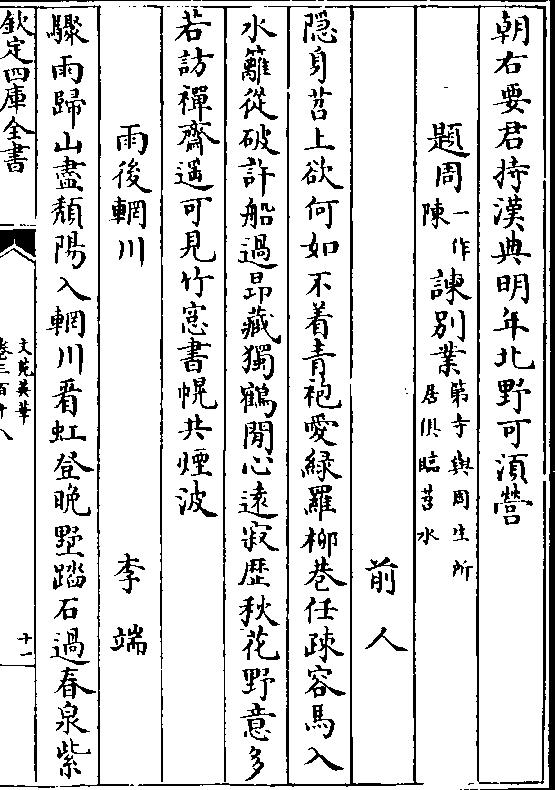 朝右要君持漢典明年北野可湏營
題周一作陳諫別業第寺與周生所居俱臨苕水
前人
隠身苕上欲何如不着青袍愛緑羅栁巷任踈容馬入
水籬從破許船過昂藏獨鶴閒心遠寂歴秋花野意多
若訪禪齋遥可見竹窓書幌共煙波
雨後輞川
李端
驟雨歸山盡頽陽入輞川看虹登晚墅踏石過春泉紫
欽定四庫全書
文苑英華
卷三百十八
十一